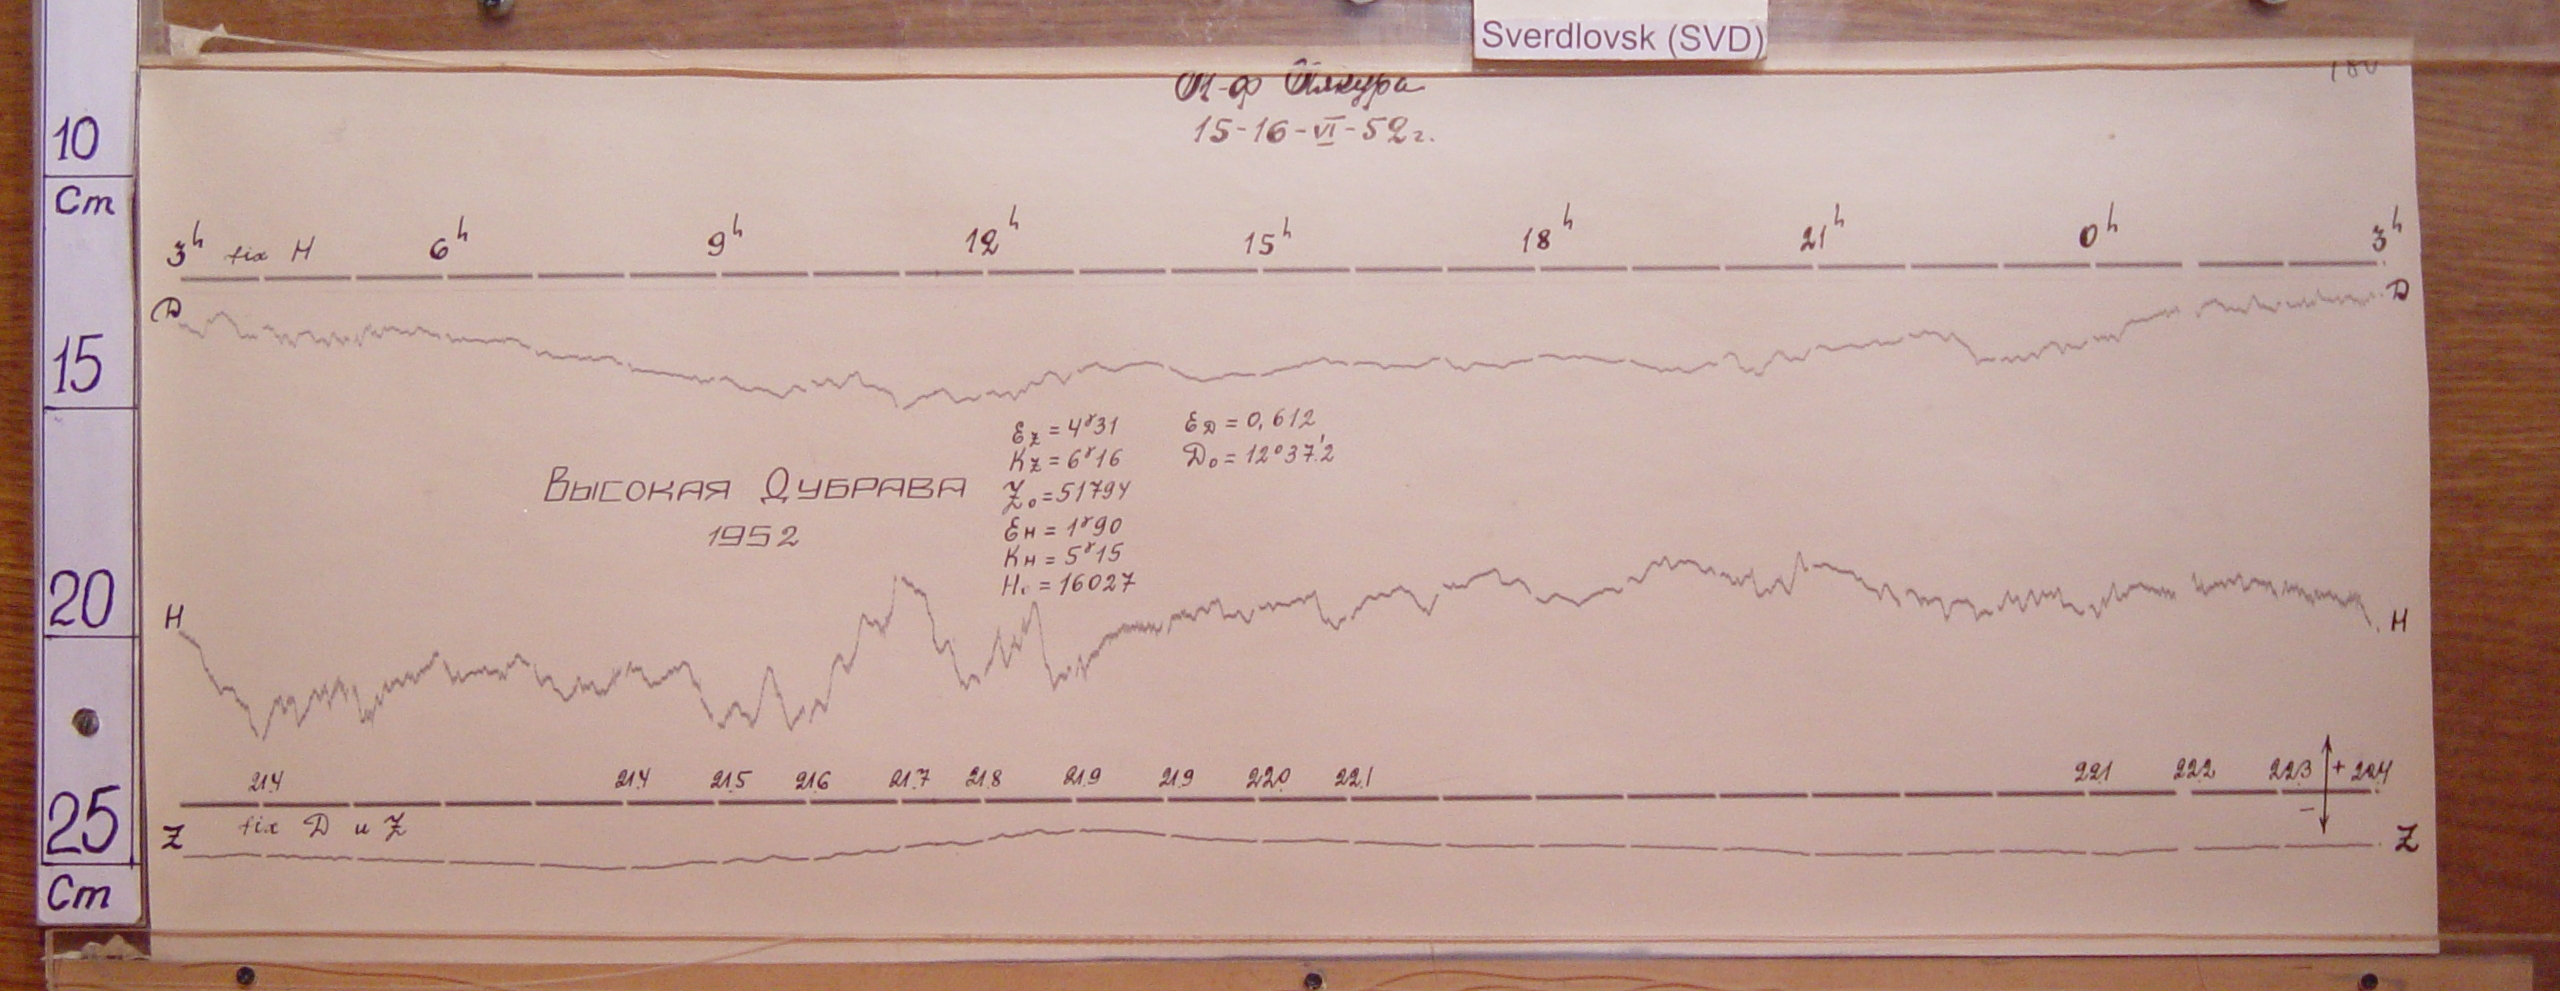 Sverdlovsk (SVD)
М-ф Яякура
15-16-VI-52г.
10
Cm
15
20
25
Cm
3h fix H 6h 9h 12h 15h 18h 21h 0h 3h
D D
Ez = 4γ31
Kz = 6γ16
Z₀ = 51794
Eн = 1γ90
Kн = 5γ15
H₀ = 16027
ED = 0,612
D₀ = 12°37.'2
Высокая Дубрава
1952
H H
21.4 21.4 21.5 21.6 21.7 21.8 21.9 21.9 22.0 22.1 22.1 22.2 22.3 + 22.4
-
fix D и Z
Z Z